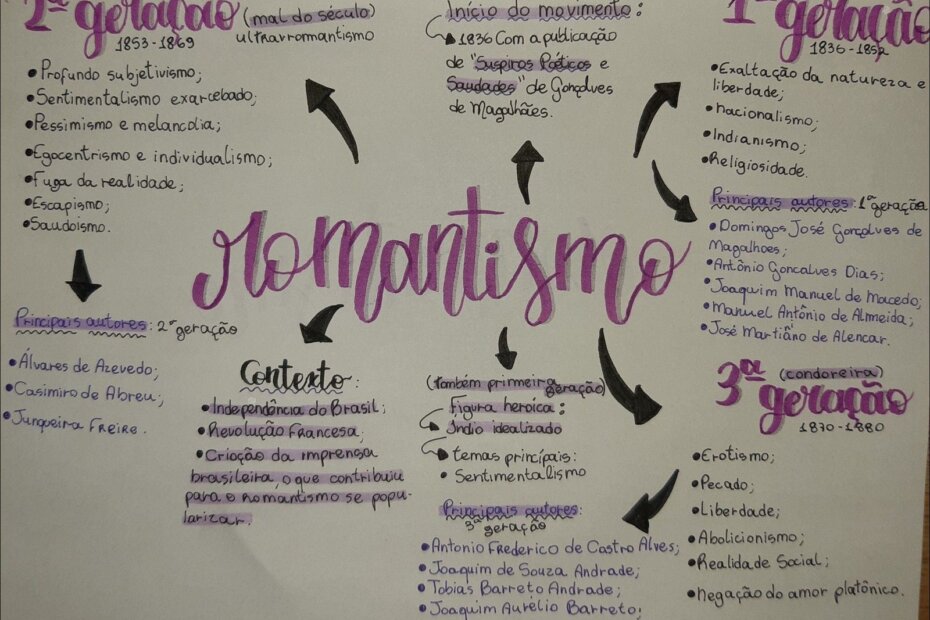 2ª geração
(mal do século)
ultrarromantismo
1853-1869
• Profundo subjetivismo;
• Sentimentalismo exarcebado;
• Pessimismo e melancolia;
• Egocentrismo e individualismo;
• Fuga da realidade;
• Escapismo;
• Saudoismo.
Principais autores: 2ª geração
• Álvares de Azevedo;
• Casimiro de Abreu;
• Junqueira Freire.
Início do movimento:
1836 Com a publicação
de "Suspiros Poéticos e
Saudades" de Gonçalves
de Magalhães.
1ª geração
1836-1852
• Exaltação da natureza e
liberdade;
• nacionalismo;
• Indianismo;
• Religiosidade.
Principais autores: 1ª geração
• Domingos José Gonçalves de
Magalhoes;
• Antônio Goncalves Dias;
• Joaquim Manuel de Macedo;
• Manuel Antônio de Almeida;
• José Martiano de Alencar.
romantismo
Contexto:
• Independência do Brasil;
• Revolução Francesa;
• Criação da imprensa
brasileira, o que contribuiu
para o romantismo se popu-
larizar.
(também primeira
geração)
Figura heroica:
Índio idealizado
temas principais:
• Sentimentalismo
Principais autores:
3ª geração
• Antonio Frederico de Castro Alves;
• Joaquim de Souza Andrade;
• Tobias Barreto Andrade;
• Joaquim Aurélio Barreto;
3ª geração
(condoreira)
1870-1880
• Erotismo;
• Pecado;
• Liberdade;
• Abolicionismo;
• Realidade Social;
• negação do amor platônico.